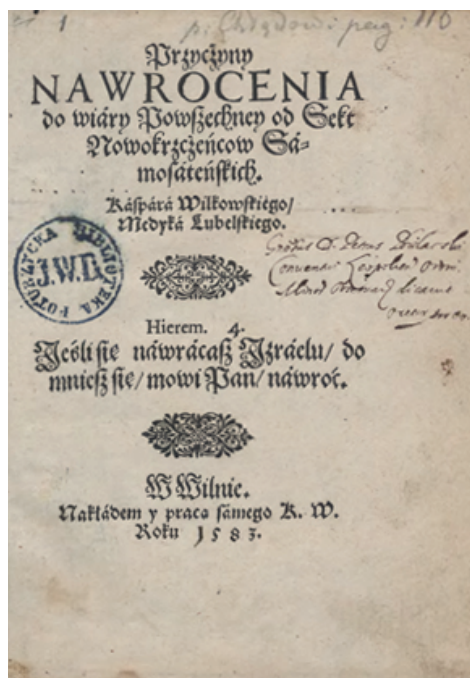 1 p. 116
Przyczyny
NAWROCENIA
do wiáry Powszechney od Sekt
Nowokrzczeńcow Sá-
mosáteńskich.
Káspárá Wilkowskiego/
Medyká Lubelskiego.
POTURZYCKA BIBLIOTEKA
J.W.D.
Hierem. 4.
Jeśli się náwrácasz Izráelu/ do
mniesz się/ mowi Pan/ náwroć.
W Wilnie.
Nakłádem y praca sámego K. W.
Roku 1583.